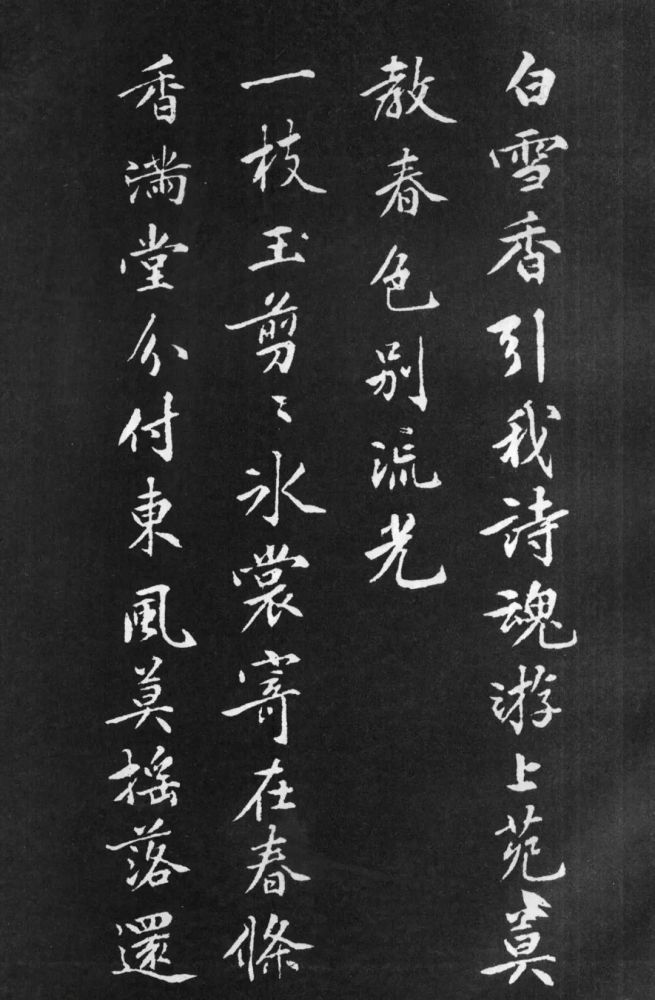 白雪香引我詩魂游上苑莫
教春色別流光
一枝玉剪〻冰裳寄在春條
香滿堂分付東風莫摇落還